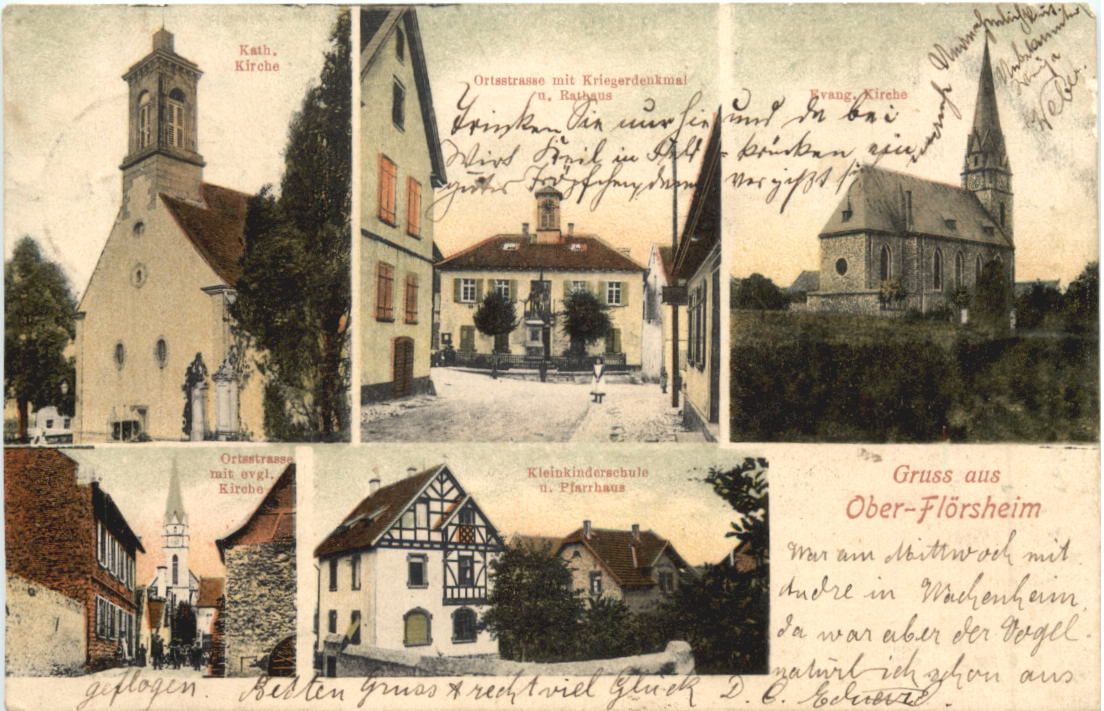 Kath.
Kirche
Ortsstrasse mit Kriegerdenkmal
u. Rathaus
Evang. Kirche
Trinken Sie nur hie und da bei
Wirt Keil in ein
gutes Tröpfchen, dann vergißt
Weber.
Ortsstrasse
mit evgl.
Kirche
Kleinkinderschule
u. Pfarrhaus
Gruss aus
Ober-Flörsheim
War am Mittwoch mit
Andre in Wachenheim,
da war aber der Vogel
natürlich schon aus
geflogen. Besten Gruss & recht viel Glück D. C. Eduard.